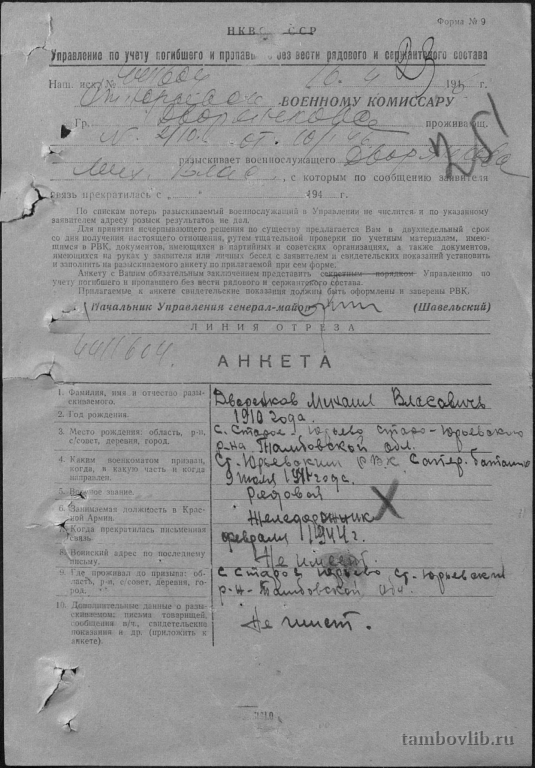 Форма № 9
НКВ ССР
Управление по учету погибшего и пропав без вести рядового и сержантского состава
Наш. исх. № 194 г.
ВОЕННОМУ КОМИССАРУ
Гр. проживающ.
от
разыскивает военнослужащего
с которым по сообщению заявителя
связь прекратилась с 194 г.
По спискам потерь разыскиваемый военнослужащий в Управление не числится и по указанному
заявителем адресу розыск результатов не дал.
Для принятия исчерпывающего решения по существу предлагается Вам в двухнедельный срок
со дня получения настоящего отношения, путем тщательной проверки по учетным материалам, имею-
щимся в РВК, документов, имеющихся в партийных и советских организациях, а также документов,
имеющихся на руках у заявителя или личных бесед с заявителем и свидетельских показаний установить
и заполнить на разыскиваемого анкету по прилагаемой при сем форме.
Анкету с Вашим обязательным заключением представить секретным порядком Управлению по
учету погибшего и пропавшего без вести рядового и сержантского состава.
Прилагаемые к анкете свидетельские показания должны быть оформлены и заверены РВК.
Начальник Управления генерал-майор (Шавельский)
ЛИНИЯ ОТРЕЗА
АНКЕТА
1. Фамилия, имя и отчество разы-
скиваемого.
Дворенков Михаил Власовичь
2. Год рождения.
1910 года.
3. Место рождения: область, р-н,
с/совет, деревня, город.
с. Старое-Юрьево Старо-Юрьевского
р-на Тамбовской обл.
4. Каким военкоматом призван,
когда, в какую часть и когда
направлен.
Ст. Юрьевским РВК.
9 июля 1941 года.
5. Воинское звание.
Рядовой
6. Занимаемая должность в Крас-
ной Армии.
7. Когда прекратилась письменная
связь.
февраля 1944 г.
8. Воинский адрес по последнему
письму.
Не имеет
9. Где проживал до призыва: об-
ласть, р-н, с/совет, деревня, го-
род.
с Старое Юрьево Ст. Юрьевский
р-н Тамбовской обл.
10. Дополнительные данные о ра-
зыскиваемом; письма товарищей,
сообщения в/ч., свидетельские
показания и др. (приложить к
анкете).
Не имеет.
tambovlib.ru